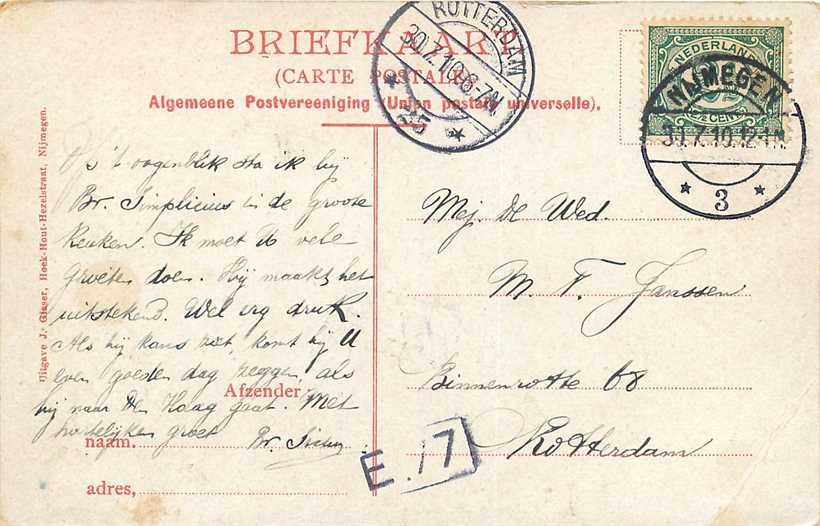 BRIEFKAART
(CARTE POSTALE)
Algemeene Postvereeniging (Union postale universelle).
ROTTERDAM
30.7.10.6-7N
25
NEDERLAND
NIJMEGEN
30.7.10.12-1N
3
Uitgave J. Glaser, Hoek-Hout-Hezelstraat, Nijmegen.
Op 't oogenblik sta ik bij
Br. Simplicius in de Groote
Keuken. Ik moet U vele
groeten doen. Hij maakt het
uitstekend. Wel erg druk.
Als hij kans ziet, komt hij U
even goeden dag zeggen, als
hij naar Den Haag gaat. Met
hartelijken groet
Br.
Afzender
naam.
adres,
Mej. De Wed.
M. F. Janssen
Binnenrotte 68
Rotterdam
E.17